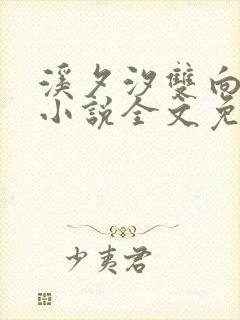 溪夕汐雙向
小說全文免
少夷君